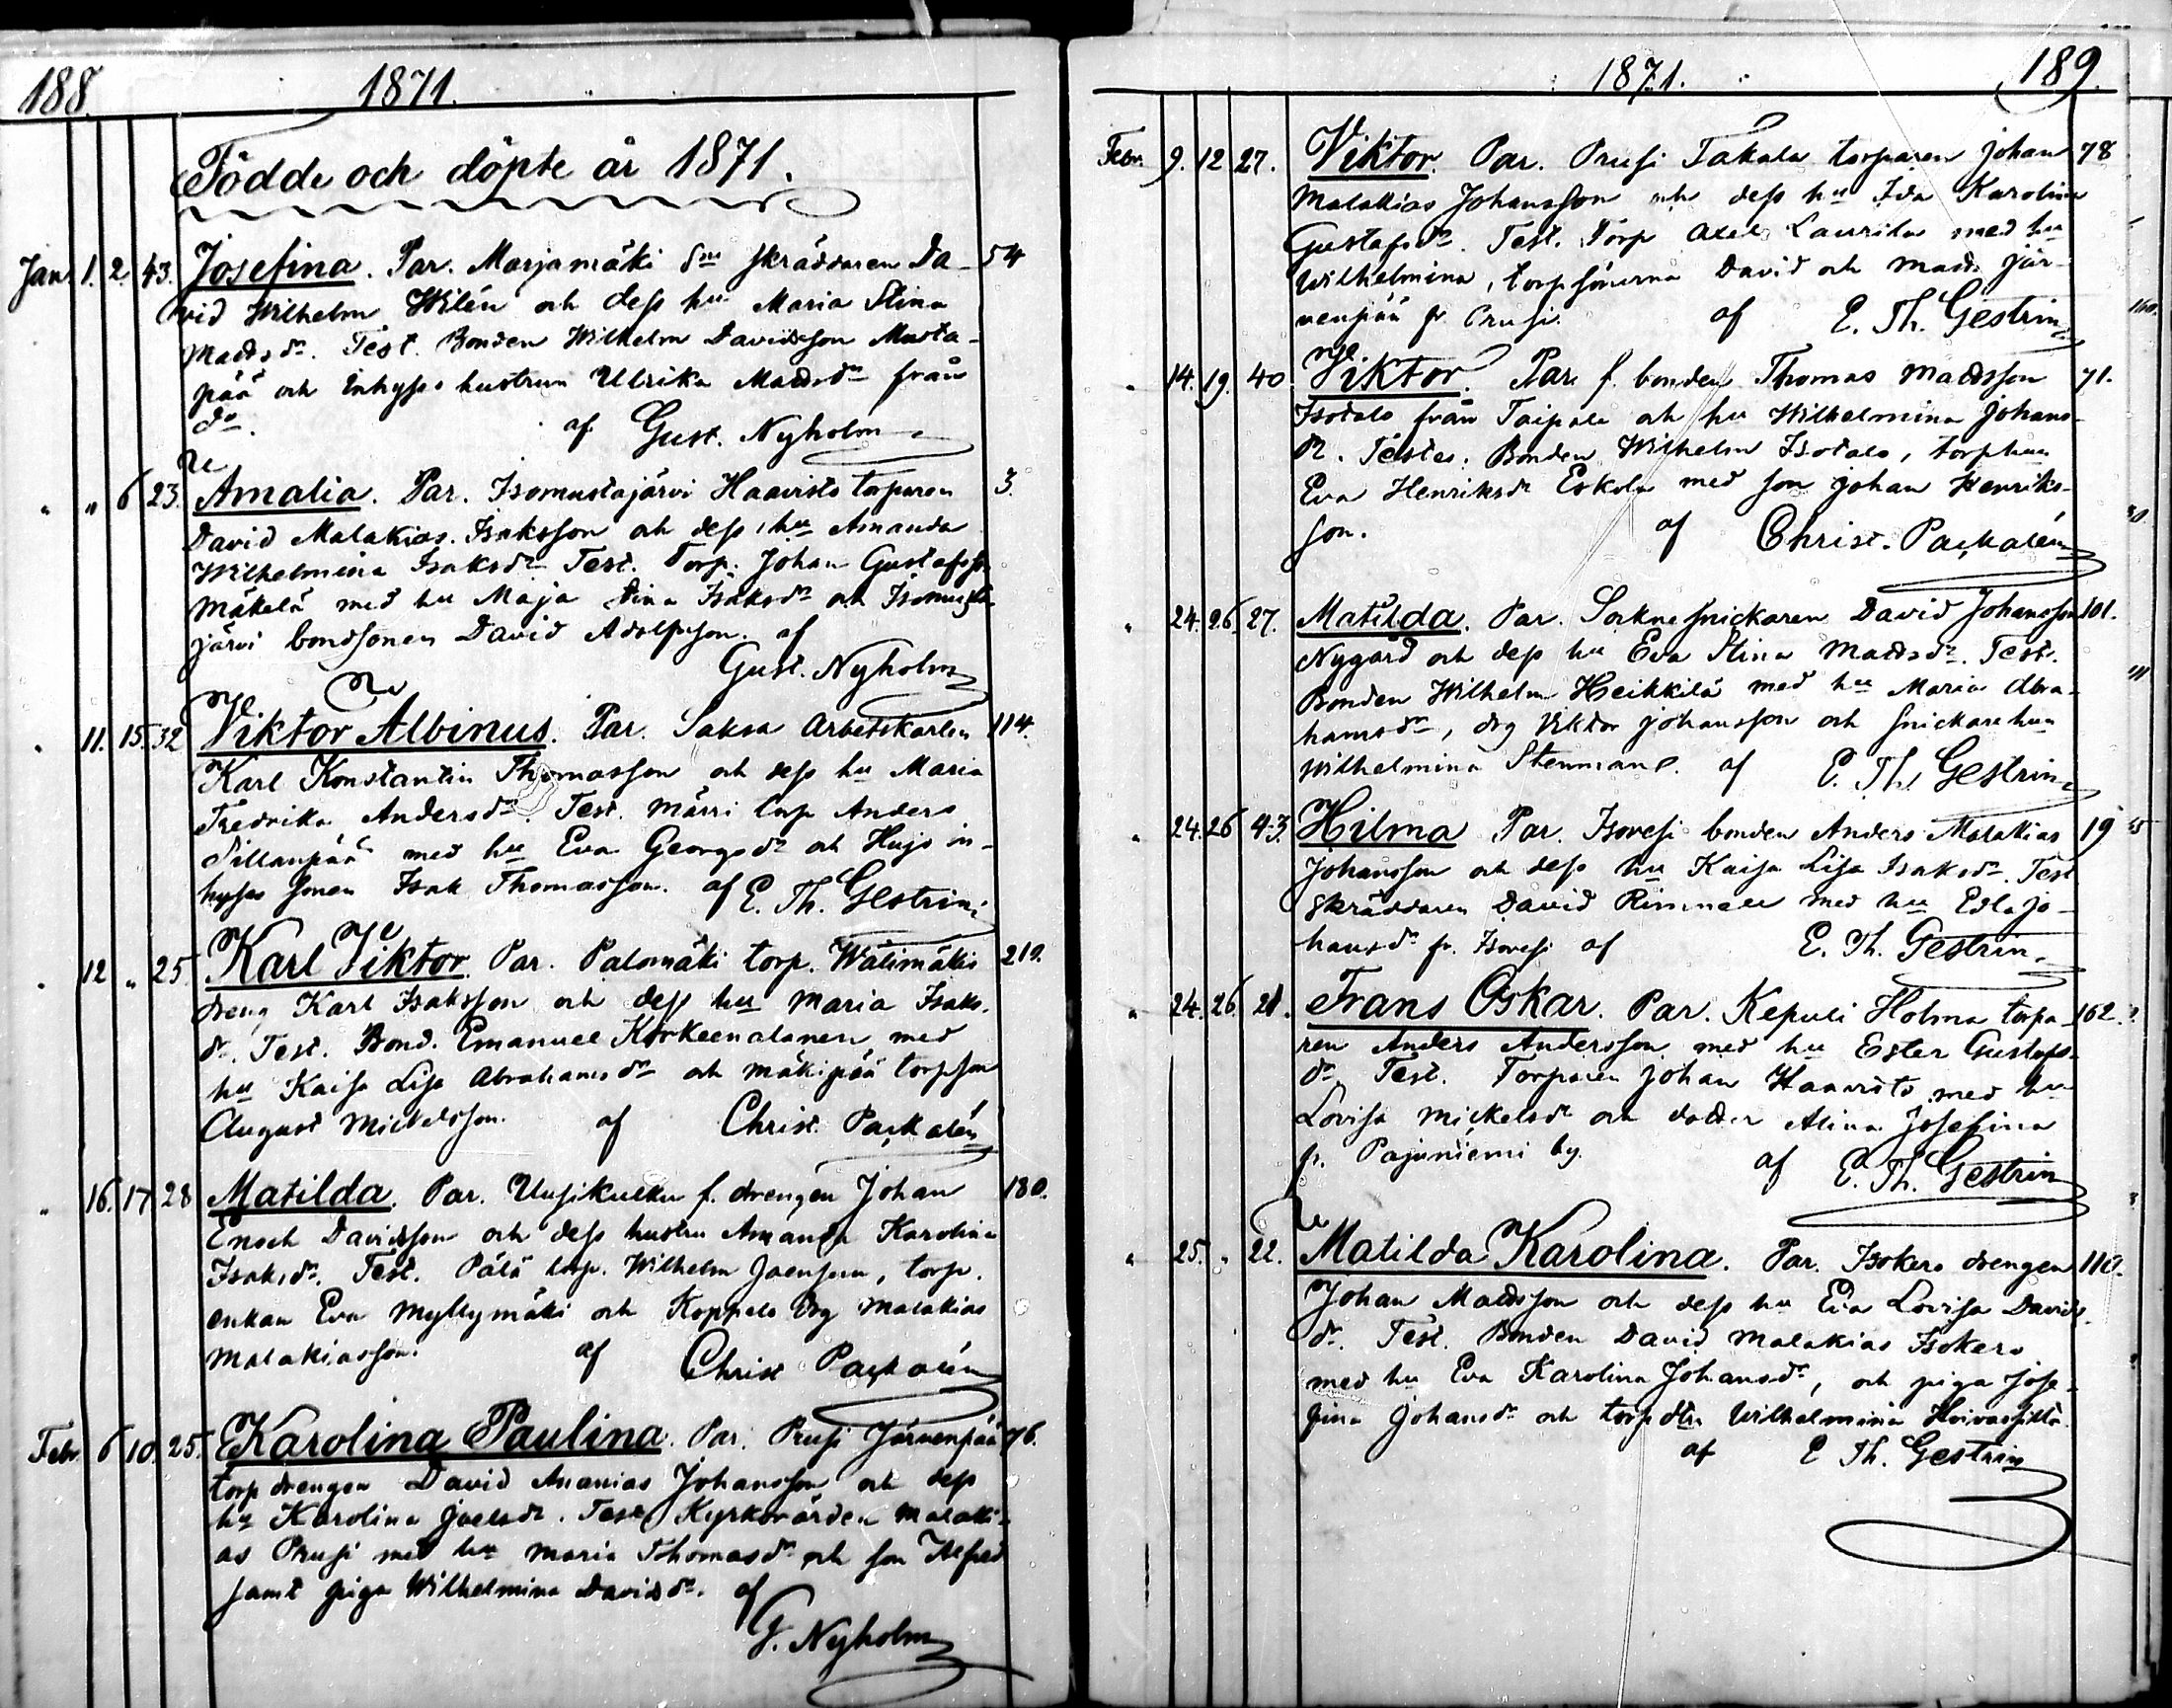 188. 1871.
Födde och döpte år 1871.
Jan. 1. 2. 43. Josefina. Par. Marjamäki skräddaren Da- 54
vid Wilhelm Wilén och dess hu Maria Stina
Madsdr. Test. Bonden Wilhelm Davidsson Musta-
pää och Inhyses hustrun Ulrika Madsdr från
do. af Gust. Nyholm
" " 6 23. Amalia. Par. Isomustajärvi Haavisto torparen 3.
David Malakias Isaksson och dess hu Amanda
Wilhelmina Isaksdr Test. Torp. Johan Gustafsson
Mäkelä med hu Maja Stina Isaksdr och Isomusta
järvi bondsonen David Adolfsson. af
Gust. Nyholm
" 11. 15. 32 Viktor Albinus. Par. Saksa Arbetskarlen 114.
Karl Konstantin Thomasson och dess hu Maria
Fredrika Andersdr. Test. Märri torp Anders
Sillanpää med hu Eva Georgsdr och Hujo in-
hyses sonen Isak Thomasson. af E. Th. Gestrin
" 12 " 25. Karl Viktor. Par. Palomäki torp. Wälimäkis 219.
dreng Karl Isaksson och dess hu Maria Isaks-
dr. Test. Bond. Emanuel Korkeenalanen med
hu Kaisa Lisa Abrahamsdr och Mäkipää torpson
August Mickelsson. af Christ. Paçkalén
" 16. 17 28 Matilda. Par. Uusikulku f. drengen Johan 180.
Enoch Davidsson och dess hustru Amanda Karolina
Isaksdr. Test. Pälä torp. Wilhelm Joensuu, torp.
enkan Eva Myllymäki och Koppelo drg Malakias
Malakiasson. af Christ Paçkalén
Febr 6 10. 25. Karolina Paulina. Par. Prusi Järvenpää 76.
torp drengen David Ananias Johansson och dess
hu Karolina Joelsdr. Test. Kyrkovärden Malaki-
as Prusi med hu Maria Thomasdr och son Alfred
samt piga Wilhelmina Davidsdr. af
G. Nyholm
1871. 189.
Febr. 9. 12 27. Viktor. Par. Prusi Takala torparen Johan 78
Malakias Johansson och dess hu Ida Karolina
Gustafsdr. Test. Torp Axel Laurila med hu
Wilhelmina, torpsönerna David och Mads Jär-
venpää fr. Prusi. af E. Th. Gestrin
" 14. 19. 40 Viktor. Par. f. bonden Thomas Madsson 71.
Isotalo från Taipale och hu Wilhelmina Johans-
dr. Testes: Bonden Wilhelm Isotalo, torphun
Eva Henriksdr Eskola med son Johan Henriks-
son. af Christ. Paçkalén
" 24. 26. 27. Matilda. Par. Sockne snickaren David Johansson 101.
Nygård och dess hu Eva Stina Madsdr. Test.
Bonden Wilhelm Heikkilä med hu Maria Abra-
hamsdr, drg Viktor Johansson och snickarehun
Wilhelmina Stenman. af E. Th. Gestrin
" 24. 26 43. Hilma Par. Isovesi bonden Anders Malakias 19
Johansson och dess hu Kaisa Lisa Isaksdr. Test
skräddaren David Rimmall med hu Edla Jo-
hansdr fr. Isovesi af E. Th. Gestrin.
" 24. 26. 21. Frans Oskar. Par. Kepuli Holma torpa- 162.
ren Anders Andersson med hu Ester Gustafs-
dr. Test. Torparen Johan Haavisto med hu
Lovisa Mickelsdr och dotter Alina Josefina
fr. Pajuniemi by. af E. Th. Gestrin
" 25. " 22. Matilda Karolina. Par. Isokero drengen 110.
Johan Madsson och dess hu Eva Lovisa Davids-
dr. Test. Bonden David Malakias Isokero
med hu Eva Karolina Johansdr, och piga Jose-
fina Johansdr och torp dtr Wilhelmina
af E Th. Gestrin